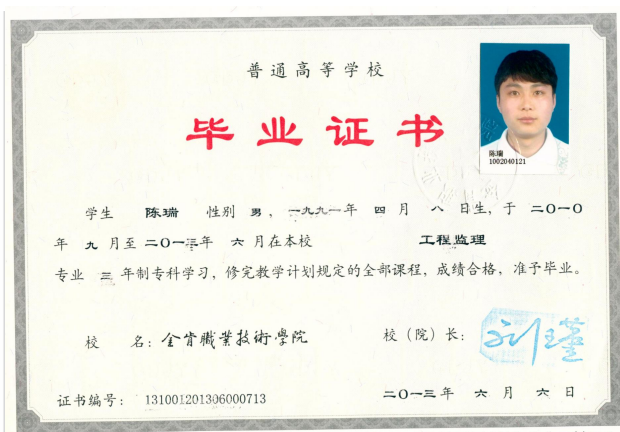 普通高等学校
毕业证书
陈瑞
1002040121
学生 陈瑞 性别 男，一九九一年 四 月 八 日生，于 二〇一〇
年 九 月至二〇一三年 六 月在本校 工程监理
专业 三 年制专科学习，修完教学计划规定的全部课程，成绩合格，准予毕业。
校 名：金肯職業技術學院
校（院）长：
证书编号：131001201306000713
二〇一三年 六 月 六 日